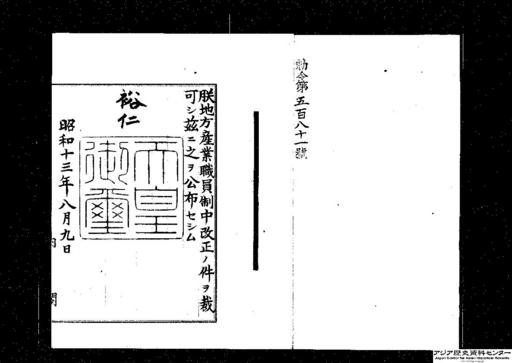 勅令第五百八十一號
朕地方産業職員制中改正ノ件ヲ裁
可シ茲ニ之ヲ公布セシム
裕仁
天皇
御璽
昭和十三年八月九日
アジア歴史資料センター
Japan Center for Asian Historical Records